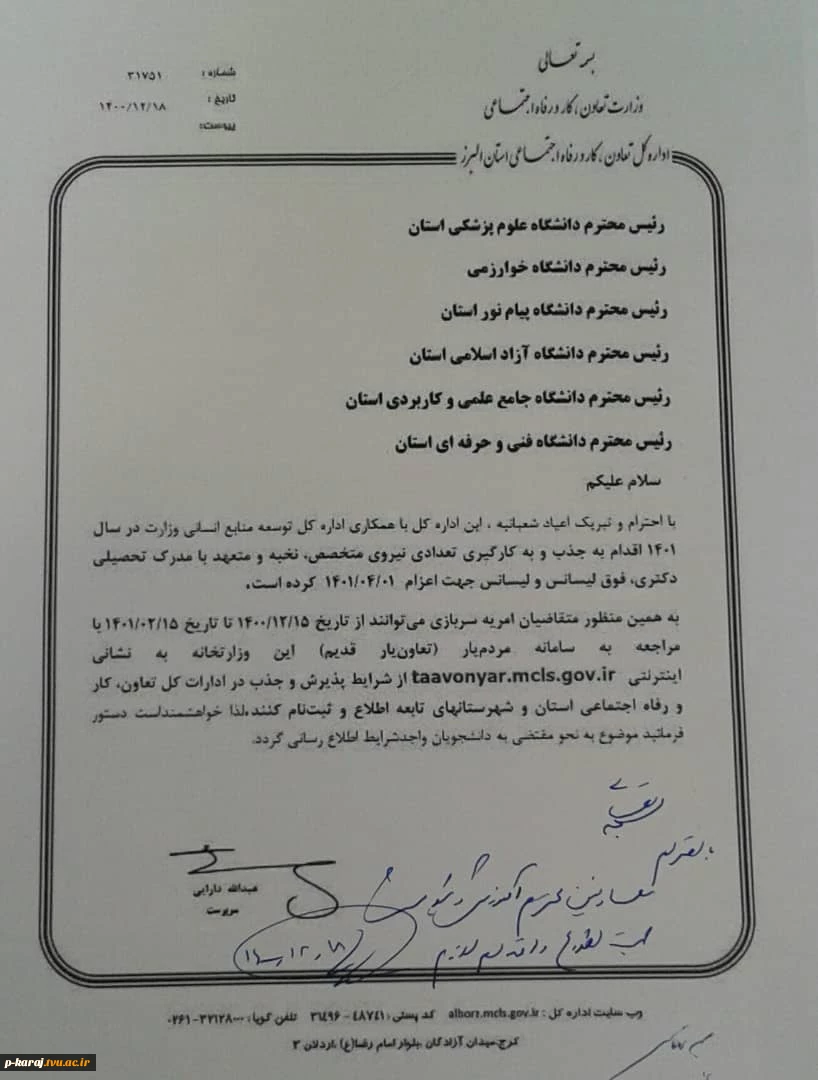 بسمه تعالی
وزارت تعاون، کار و رفاه اجتماعی
اداره کل تعاون، کار و رفاه اجتماعی استان البرز
شماره : ۳۱۷۵۱
تاریخ : ۱۴۰۰/۱۲/۱۸
پیوست:
رئیس محترم دانشگاه علوم پزشکی استان
رئیس محترم دانشگاه خوارزمی
رئیس محترم دانشگاه پیام نور استان
رئیس محترم دانشگاه آزاد اسلامی استان
رئیس محترم دانشگاه جامع علمی و کاربردی استان
رئیس محترم دانشگاه فنی و حرفه ای استان
سلام علیکم
با احترام و تبریک اعیاد شعبانیه ، این اداره کل با همکاری اداره کل توسعه منابع انسانی وزارت در سال
۱۴۰۱ اقدام به جذب و به کارگیری تعدادی نیروی متخصص، نخبه و متعهد با مدرک تحصیلی
دکتری، فوق لیسانس و لیسانس جهت اعزام ۱۴۰۱/۰۴/۰۱ کرده است.
به همین منظور متقاضیان امریه سربازی می‌توانند از تاریخ ۱۴۰۰/۱۲/۱۵ تا تاریخ ۱۴۰۱/۰۲/۱۵ با
مراجعه به سامانه مردم‌یار (تعاون‌یار قدیم) این وزارتخانه به نشانی
اینترنتی taavonyar.mcls.gov.ir از شرایط پذیرش و جذب در ادارات کل تعاون، کار
و رفاه اجتماعی استان و شهرستانهای تابعه اطلاع و ثبت‌نام کنند.لذا خواهشمنداست دستور
فرمائید موضوع به نحو مقتضی به دانشجویان واجدشرایط اطلاع رسانی گردد.
عبدالله دارایی
سرپرست
معاونین محترم آموزشی و
جهت اطلاع و اقدام لازم
وب سایت اداره کل : alborz.mcls.gov.ir کد پستی : ۴۸۷۴۱ - ۳۱۴۹۶ تلفن گویا : ۳۲۱۲۸۰۰۰-۰۲۶۱
کرج،میدان آزادگان ،بلوار امام رضا(ع) ،اردلان ۳
p-karaj.tvu.ac.ir